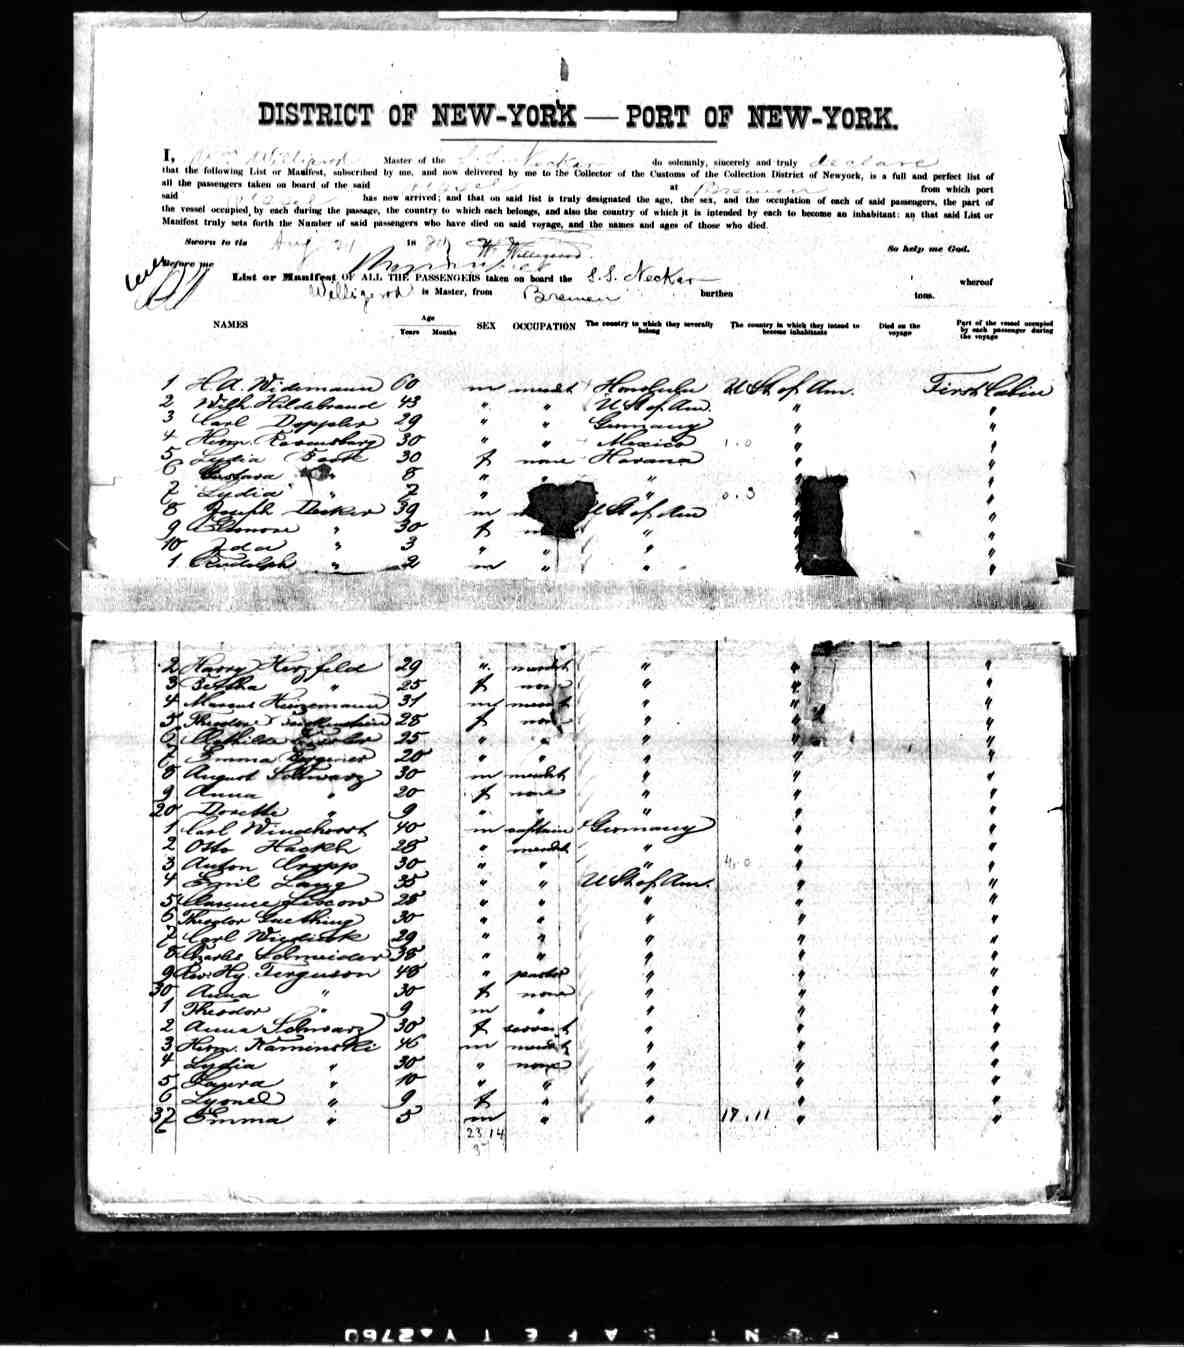 DISTRICT OF NEW-YORK — PORT OF NEW-YORK.
I, Wm Willigerod Master of the S.S. Neckar do solemnly, sincerely and truly declare
that the following List or Manifest, subscribed by me, and now delivered by me to the Collector of the Customs of the Collection District of Newyork, is a full and perfect list of
all the passengers taken on board of the said vessel at Bremen from which port
said vessel has now arrived; and that on said list is truly designated the age, the sex, and the occupation of each of said passengers, the part of
the vessel occupied by each during the passage, the country to which each belongs, and also the country of which it is intended by each to become an inhabitant: an that said List or
Manifest truly sets forth the Number of said passengers who have died on said voyage, and the names and ages of those who died.
Sworn to tis Aug 18 W. Willigerod So help me God.
Before me
List or Manifest OF ALL THE PASSENGERS taken on board the S.S. Neckar whereof
Willigerod is Master, from Bremen burthen tons.
NAMES Age Years Months SEX OCCUPATION The country to which they severally belong The country in which they intend to become inhabitants Died on the voyage Part of the vessel occupied by each passenger during the voyage
1 H.A. Widemann 60 m mercht Honolulu U St of Am. First Cabin
2 Wilh. Hildebrand 43 " " U St of Am. " "
3 Carl Doppler 29 " " Germany " "
4 Herm. Ravensburg 30 " " Mexico 1.0 " "
5 Lydia 30 f none Havana " "
6 Gustava " 8 " " " " "
7 Lydia " 7 " " 0.3 " "
8 Joseph Decker 39 m U St of Am " "
9 Elenore " 30 f " " "
10 Ida " 3 " " " " "
1 Rudolph " 2 m " " " "
2 Harry Herzfeld 29 " mercht " " "
3 Bertha " 25 f none " " "
4 Marcus Heinemann 31 m mercht " " "
5 Theodore 28 f none " " "
6 Mathilde 25 " " " " "
7 Emma 20 " " " " "
8 August Schwarz 30 m mercht " " "
9 Anna " 20 f none " " "
20 Dorette " 9 " " " " "
1 Carl Windhorst 40 m captain Germany " "
2 Otto Hackh 28 " mercht " " "
3 Anton Cropp 30 " " " 4.0 " "
4 Emil Lang 35 " " U St of Am. " "
5 Clarence Liscow 28 " " " " "
6 Theodor Guething 30 " " " " "
7 Carl 29 " " " " "
8 Charles Schneider 38 " " " " "
9 Rev. Hy. Ferguson 48 " pastor " " "
30 Anna " 30 f none " " "
1 Theodor " 9 m " " " "
2 Anna Schwarz 30 f servant " " "
3 Herm. Kaminski 46 m mercht " " "
4 Lydia " 30 " none " " "
5 Laura " 10 " " " " "
6 Lyonel " 9 f " " " "
37 Emma " 5 m " " 17.11 " "
23 14